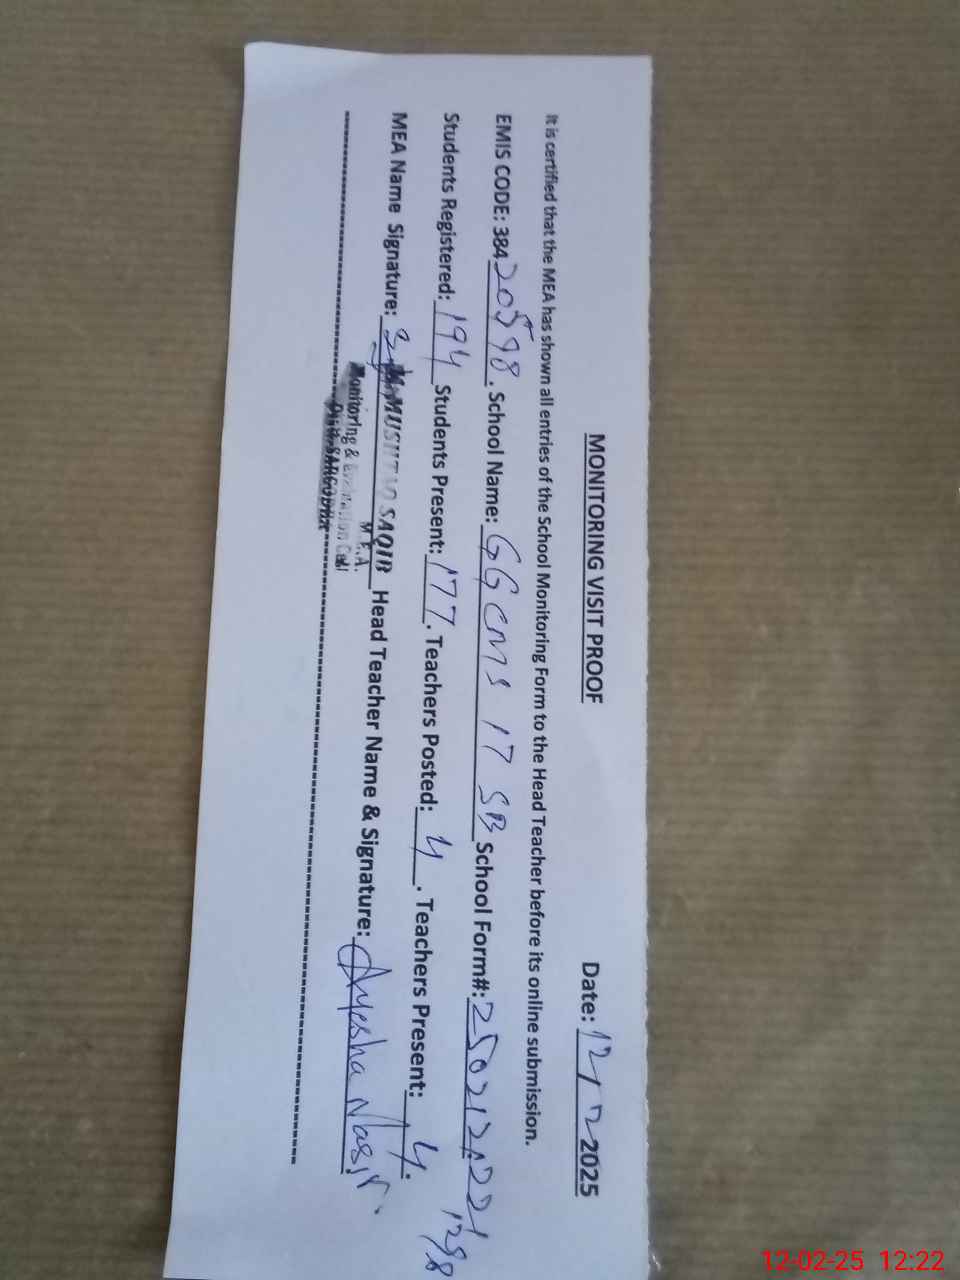 MONITORING VISIT PROOF Date: 12/2 2025
It is certified that the MEA has shown all entries of the School Monitoring Form to the Head Teacher before its online submission.
EMIS CODE: 384 20598. School Name: GGCMS 17 SB School Form#: 2502121221
1298
Students Registered: 194 Students Present: 177. Teachers Posted: 4. Teachers Present: 4.
MEA Name Signature: MUSHTAQ SAQIB Head Teacher Name & Signature: Ayesha Nasir
M.E.A.
Monitoring & Evaluation Cell
Distt. SARGODHA
12-02-25 12:22